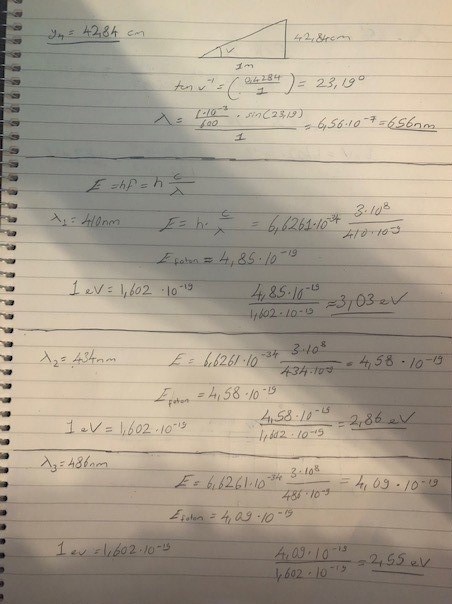 y₄ = 42,84 cm
42,84cm
v
1m
tan v⁻¹ = (0,4284/1) = 23,19°
λ = (1·10⁻³/600 · sin(23,19))/1 = 6,56·10⁻⁷ = 656nm
E = hf = h c/λ
λ₁ = 410nm E = h· c/λ = 6,6261·10⁻³⁴ 3·10⁸/410·10⁻⁹
E foton = 4,85·10⁻¹⁹
1 eV = 1,602·10⁻¹⁹ 4,85·10⁻¹⁹/1,602·10⁻¹⁹ = 3,03 eV
λ₂ = 434nm E = 6,6261·10⁻³⁴ 3·10⁸/434·10⁻⁹ = 4,58·10⁻¹⁹
E foton = 4,58·10⁻¹⁹
1 eV = 1,602·10⁻¹⁹ 4,58·10⁻¹⁹/1,602·10⁻¹⁹ = 2,86 eV
λ₃ = 486nm E = 6,6261·10⁻³⁴ 3·10⁸/486·10⁻⁹ = 4,09·10⁻¹⁹
E foton = 4,09·10⁻¹⁹
1 eV = 1,602·10⁻¹⁹ 4,09·10⁻¹⁹/1,602·10⁻¹⁹ = 2,55 eV